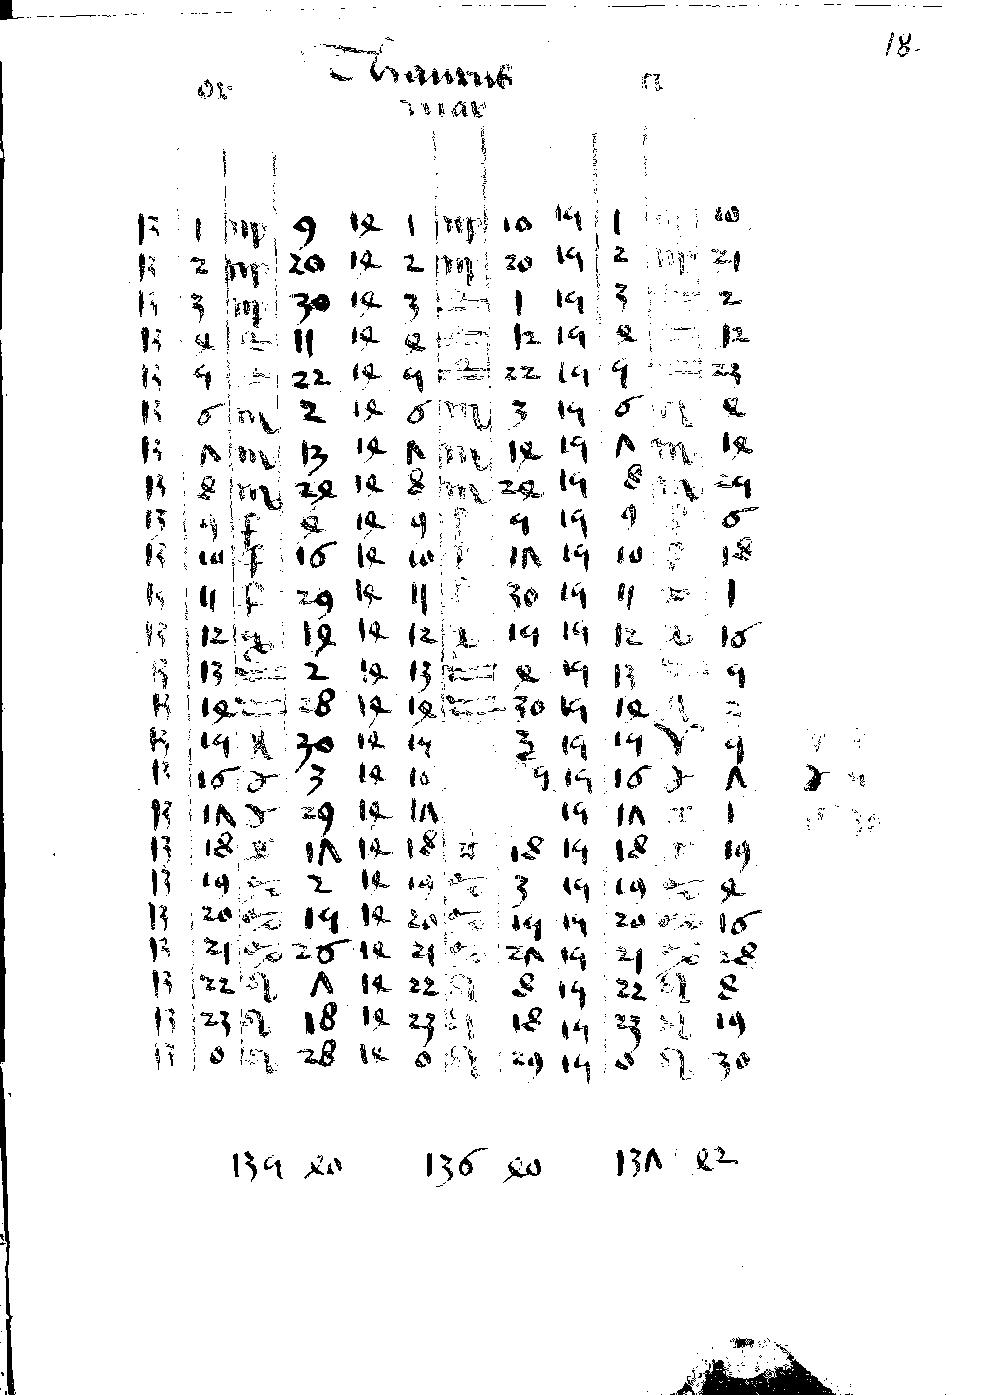 18.
Thaurus
mar
13 1 ♍ 9 14 1 ♍ 10 15 1 ♍ 10
13 2 ♍ 20 14 2 ♍ 20 15 2 ♍ 21
13 3 ♍ 30 14 3 ♎ 1 15 3 ♎ 2
13 4 ♎ 11 14 4 ♎ 12 15 4 ♎ 12
13 5 ♎ 22 14 5 ♎ 22 15 5 ♎ 23
13 6 ♏ 2 14 6 ♏ 3 15 6 ♏ 4
13 7 ♏ 13 14 7 ♏ 14 15 7 ♏ 14
13 8 ♏ 24 14 8 ♏ 24 15 8 ♏ 25
13 9 ♐ 4 14 9 ♐ 5 15 9 ♐ 6
13 10 ♐ 16 14 10 ♐ 17 15 10 ♐ 18
13 11 ♐ 29 14 11 ♐ 30 15 11 ♑ 1
13 12 ♑ 14 14 12 ♑ 15 15 12 ♑ 16
13 13 ♒ 2 14 13 ♒ 4 15 13 ♒ 5
13 14 ♒ 28 14 14 ♒ 30 15 14 ♓ 2
13 15 ♓ 30 14 15 3 15 15 ♈ 5
13 16 ♉ 3 14 16 5 15 16 ♉ 7 ♉ 5
13 17 ♉ 29 14 17 15 17 ♊ 1 30
13 18 ♊ 17 14 18 ♊ 18 15 18 ♊ 19
13 19 ♋ 2 14 19 ♋ 3 15 19 ♋ 4
13 20 ♋ 15 14 20 ♋ 15 15 20 ♋ 16
13 21 ♋ 26 14 21 ♋ 27 15 21 ♋ 28
13 22 ♌ 7 14 22 ♌ 8 15 22 ♌ 8
13 23 ♌ 18 14 23 ♌ 18 15 23 ♌ 19
13 0 ♌ 28 14 0 ♌ 29 15 0 ♌ 30
135 40 136 40 137 42